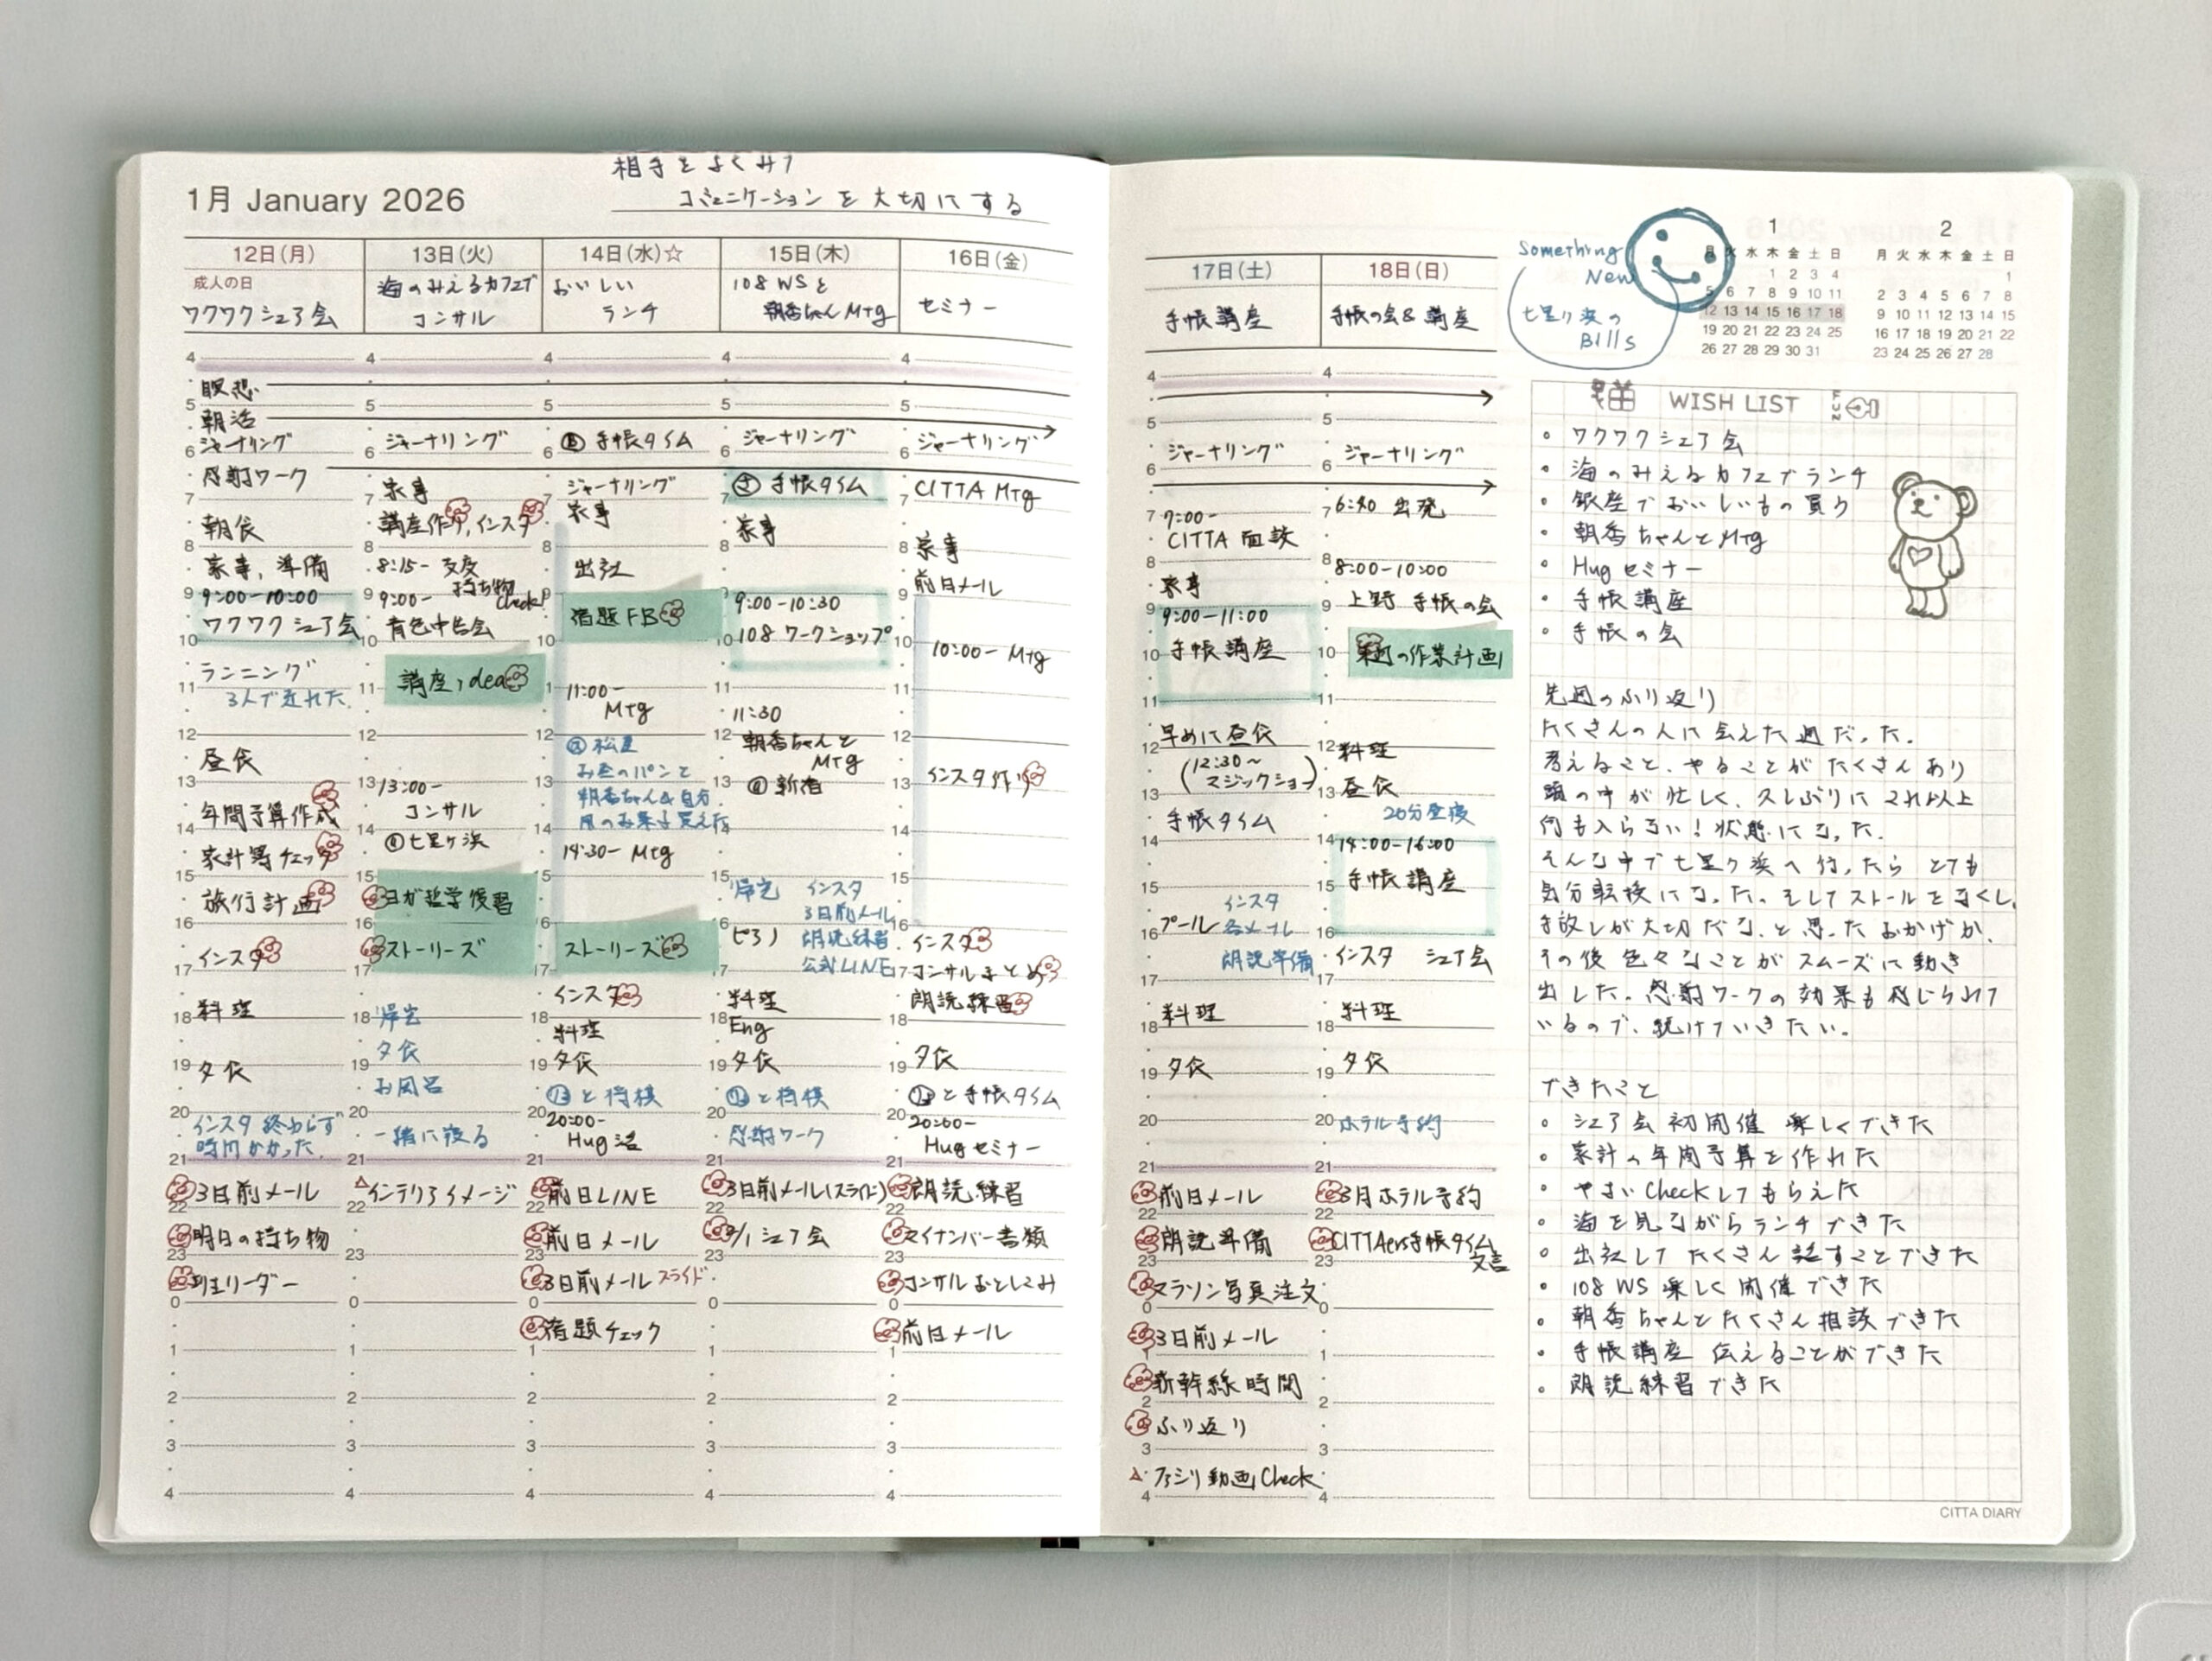 相手をよくみて
1月 January 2026
コミュニケーションを大切にする
12日(月)
成人の日
ワクワクシェア会
4
瞑想
5
朝活
6 ジャーナリング
感謝ワーク
7
朝食
8
家事、準備
9 9:00-10:00
ワクワクシェア会
10
ランニング
11 3人で走れた
12
昼食
13
年間予算作成
14
家計簿チェック
15
旅行計画
16
インスタ
17
18 料理
19 夕食
20
インスタ終わらず
時間かかった
21
3日前メール
22
明日の持ち物
23
班リーダー
0
1
2
3
4
13日(火)
海のみえるカフェで
コンサル
4
5
6 ジャーナリング
7 家事
講座作り, インスタ
8
8:15- 支度
持ち物
check!
9 9:00-
青色申告会
10
11 講座idea
12
13 13:00-
コンサル
14 @七里ヶ浜
15
ヨガ哲学復習
16
ストーリーズ
17
18 帰宅
夕食
19
お風呂
20
一緒に寝る
21
インテリアイメージ
22
23
0
1
2
3
4
14日(水)☆
おいしい
ランチ
4
5
6 手帳タイム
7 ジャーナリング
家事
8
出社
9
宿題FB
10
11 11:00-
Mtg
12
@松屋
お昼のパンと
13 朝香ちゃん&自分
用のお菓子買えた
14
14:30- Mtg
15
16
ストーリーズ
17
インスタ
18
料理
19 夕食
と将棋
20 20:00-
Hug活
21
前日LINE
22
前日メール
23
3日前メール スライド
0
宿題チェック
1
2
3
4
15日(木)
108 WSと
朝香ちゃんMtg
4
5
6 ジャーナリング
手帳タイム
7
家事
8
9 9:00-10:30
108 ワークショップ
10
11
11:30
12 朝香ちゃんと
Mtg
13 @新宿
14
15 帰宅 インスタ
3日前メール
16 ピアノ 朗読練習
公式LINE
17
料理
18 Eng
19 夕食
と将棋
20
感謝ワーク
21
3日前メール(スライド)
22
シェア会
23
0
1
2
3
4
16日(金)
セミナー
4
5
6 ジャーナリング
7 CITTA Mtg
8 家事
前日メール
9
10 10:00- Mtg
11
12
13 インスタ作り
14
15
16
インスタ
17 コンサルまとめ
朗読練習
18
19 夕食
と手帳タイム
20 20:00-
Hugセミナー
21
朗読練習
22
マイナンバー書類
23
コンサルおとしこみ
0
前日メール
1
2
3
4
17日(土)
手帳講座
4
5
ジャーナリング
6
7 7:00-
CITTA 面談
8
家事
9 9:00-11:00
10 手帳講座
11
早めに昼食
12
(12:30~
マジックショー)
13
手帳タイム
14
15 インスタ
16 プール 各メール
朗読準備
17
18 料理
19 夕食
20
21
前日メール
22
朗読準備
23
マラソン写真注文
0
3日前メール
1
新幹線時間
2
ふり返り
3
ファミリ動画Check
4
18日(日)
手帳の会& 講座
4
5
6 ジャーナリング
7 6:40 出発
8 8:00-10:00
9 上野 手帳の会
10 週の作業計画
11
12 料理
13 昼食
20分昼寝
14 14:00-16:00
15 手帳講座
16
インスタ シェア会
17
18 料理
19 夕食
20 ホテル予約
21
3月ホテル予約
22
CITTAers手帳タイム
文言
23
0
1
2
3
4
Something
New
七里ヶ浜の
Bills
1
月 火 水 木 金 土 日
1 2 3 4
5 6 7 8 9 10 11
12 13 14 15 16 17 18
19 20 21 22 23 24 25
26 27 28 29 30 31
2
月 火 水 木 金 土 日
1
2 3 4 5 6 7 8
9 10 11 12 13 14 15
16 17 18 19 20 21 22
23 24 25 26 27 28
WISH LIST
FUN
・ワクワクシェア会
・海のみえるカフェでランチ
・銀座でおいしいもの買う
・朝香ちゃんとMtg
・Hugセミナー
・手帳講座
・手帳の会
先週のふり返り
たくさんの人に会えた週だった。
考えること、やることがたくさんあり
頭の中が忙しく、久しぶりにこれ以上
何も入らない！状態になった。
そんな中で七里ヶ浜へ行ったらとても
気分転換になった。そしてストールをなくし、
手放しが大切だな、と思ったおかげか、
その後色々なことがスムーズに動き
出した。感謝ワークの効果も感じられて
いるので、続けていきたい。
できたこと
・シェア会初開催 楽しくできた
・家計の年間予算を作れた
・やよいCheckしてもらえた
・海を見ながらランチできた
・出社してたくさん話すことできた
・108 WS 楽しく開催できた
・朝香ちゃんとたくさん相談できた
・手帳講座 伝えることができた
・朗読練習できた
CITTA DIARY